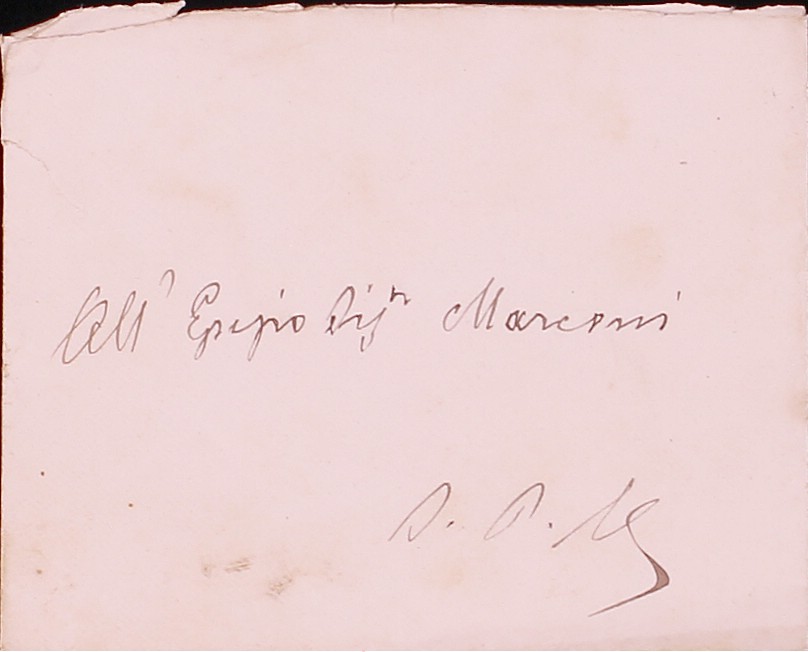 All' Egregio Sigr Marconi
S. P. M.